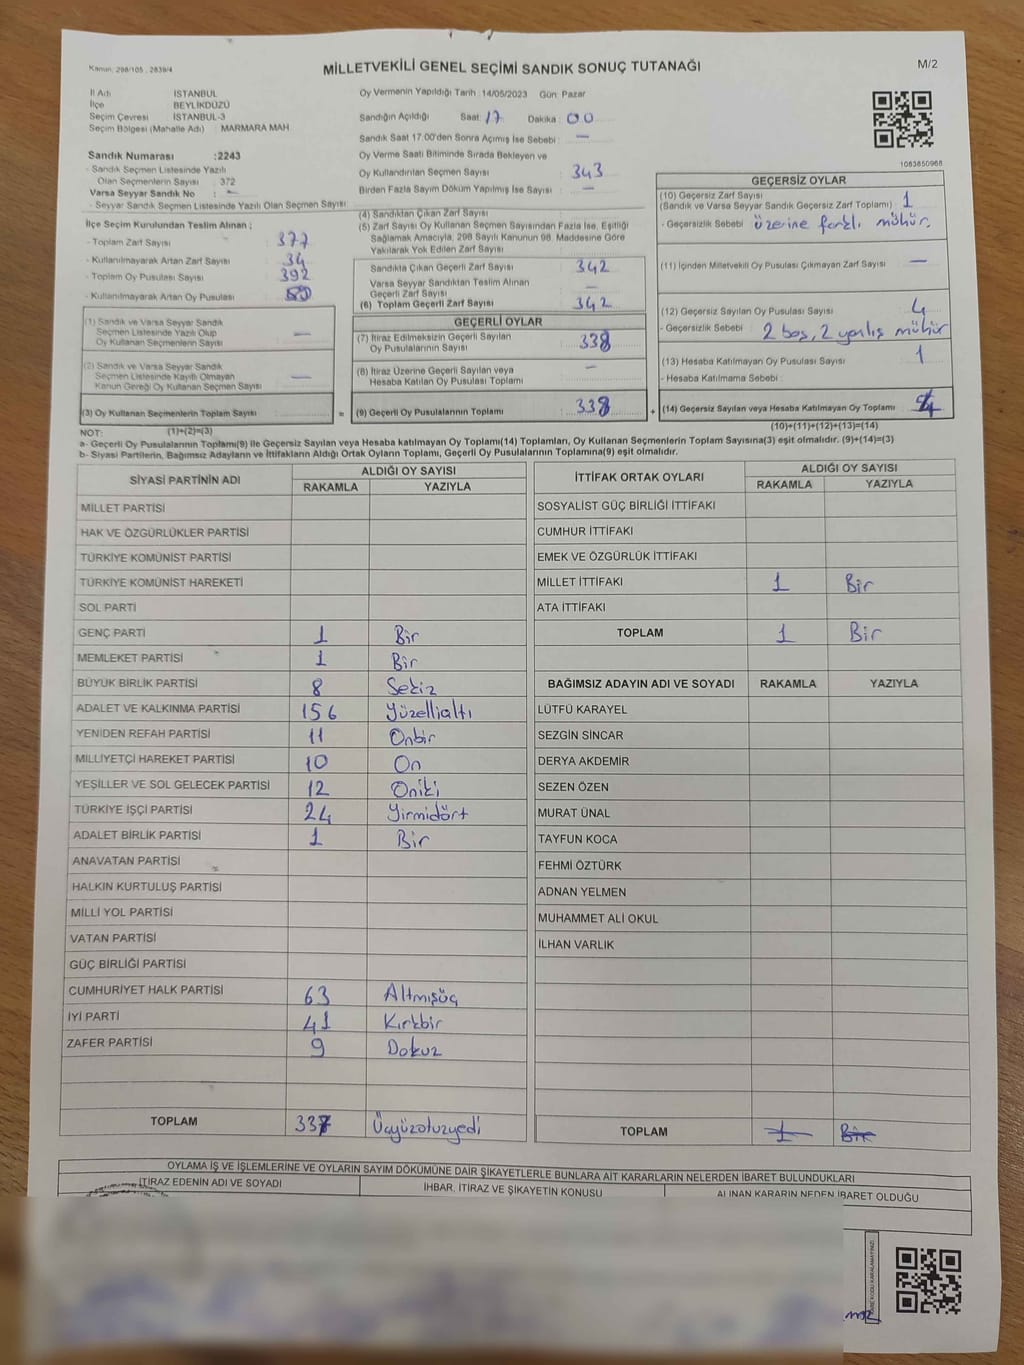 Kanun: 298/105, 2839/4
MİLLETVEKİLİ GENEL SEÇİMİ SANDIK SONUÇ TUTANAĞI
M/2
İl Adı İSTANBUL
İlçe BEYLİKDÜZÜ
Seçim Çevresi İSTANBUL-3
Seçim Bölgesi (Mahalle Adı) : MARMARA MAH.
Sandık Numarası :2243
- Sandık Seçmen Listesinde Yazılı
Olan Seçmenlerin Sayısı : 372
Varsa Seyyar Sandık No : -
- Seyyar Sandık Seçmen Listesinde Yazılı Olan Seçmen Sayısı
İlçe Seçim Kurulundan Teslim Alınan ;
- Toplam Zarf Sayısı : 377
- Kullanılmayarak Artan Zarf Sayısı : 34
- Toplam Oy Pusulası Sayısı : 392
- Kullanılmayarak Artan Oy Pusulası
(1) Sandık ve Varsa Seyyar Sandık
Seçmen Listesinde Yazılı Olup
Oy Kullanan Seçmenlerin Sayısı : —
(2) Sandık ve Varsa Seyyar Sandık
Seçmen Listesinde Kayıtlı Olmayan
Kanun Gereği Oy Kullanan Seçmen Sayısı : —
(3) Oy Kullanan Seçmenlerin Toplam Sayısı =
(1)+(2)=(3)
Oy Vermenin Yapıldığı Tarih : 14/05/2023 Gün: Pazar
Sandığın Açıldığı Saat: 17 Dakika : 00
Sandık Saat 17.00'den Sonra Açımış İse Sebebi : —
Oy Verme Saati Bitiminde Sırada Bekleyen ve
Oy Kullandırılan Seçmen Sayısı : 343
Birden Fazla Sayım Döküm Yapılmış İse Sayısı : —
(4) Sandıktan Çıkan Zarf Sayısı
(5) Zarf Sayısı Oy Kullanan Seçmen Sayısından Fazla İse, Eşitliği
Sağlamak Amacıyla, 298 Sayılı Kanunun 98. Maddesine Göre
Yakılarak Yok Edilen Zarf Sayısı :
Sandıkta Çıkan Geçerli Zarf Sayısı : 342
Varsa Seyyar Sandıktan Teslim Alınan
Geçerli Zarf Sayısı : —
(6) Toplam Geçerli Zarf Sayısı : 342
GEÇERLİ OYLAR
(7) İtiraz Edilmeksizin Geçerli Sayılan
Oy Pusulalarının Sayısı : 338
(8) İtiraz Üzerine Geçerli Sayılan veya
Hesaba Katılan Oy Pusulası Toplamı : —
(9) Geçerli Oy Pusulalarının Toplamı : 338 +
1083850968
GEÇERSİZ OYLAR
(10) Geçersiz Zarf Sayısı
(Sandık ve Varsa Seyyar Sandık Geçersiz Zarf Toplamı) : 1
- Geçersizlik Sebebi : üzerine farklı mühür.
(11) İçinden Milletvekili Oy Pusulası Çıkmayan Zarf Sayısı : —
(12) Geçersiz Sayılan Oy Pusulası Sayısı : 4
- Geçersizlik Sebebi : 2 boş, 2 yanlış mühür
(13) Hesaba Katılmayan Oy Pusulası Sayısı : 1
- Hesaba Katılmama Sebebi :
(14) Geçersiz Sayılan veya Hesaba Katılmayan Oy Pusulası Toplamı : 4
(10)+(11)+(12)+(13)=(14)
NOT:
a- Geçerli Oy Pusulalarının Toplamı(9) ile Geçersiz Sayılan veya Hesaba katılmayan Oy Toplamı(14) Toplamları, Oy Kullanan Seçmenlerin Toplam Sayısına(3) eşit olmalıdır. (9)+(14)=(3)
b- Siyasi Partilerin, Bağımsız Adayların ve İttifakların Aldığı Ortak Oyların Toplamı, Geçerli Oy Pusulalarının Toplamına(9) eşit olmalıdır.
SİYASİ PARTİNİN ADI ALDIĞI OY SAYISI
RAKAMLA YAZIYLA
MİLLET PARTİSİ
HAK VE ÖZGÜRLÜKLER PARTİSİ
TÜRKİYE KOMÜNİST PARTİSİ
TÜRKİYE KOMÜNİST HAREKETİ
SOL PARTİ
GENÇ PARTİ 1 Bir
MEMLEKET PARTİSİ 1 Bir
BÜYÜK BİRLİK PARTİSİ 8 Sekiz
ADALET VE KALKINMA PARTİSİ 156 Yüzellialtı
YENİDEN REFAH PARTİSİ 11 Onbir
MİLLİYETÇİ HAREKET PARTİSİ 10 On
YEŞİLLER VE SOL GELECEK PARTİSİ 12 Oniki
TÜRKİYE İŞÇİ PARTİSİ 24 Yirmidört
ADALET BİRLİK PARTİSİ 1 Bir
ANAVATAN PARTİSİ
HALKIN KURTULUŞ PARTİSİ
MİLLİ YOL PARTİSİ
VATAN PARTİSİ
GÜÇ BİRLİĞİ PARTİSİ
CUMHURİYET HALK PARTİSİ 63 Altmışüç
İYİ PARTİ 41 Kırkbir
ZAFER PARTİSİ 9 Dokuz
TOPLAM 337 Üçyüzotuzyedi
İTTİFAK ORTAK OYLARI ALDIĞI OY SAYISI
RAKAMLA YAZIYLA
SOSYALİST GÜÇ BİRLİĞİ İTTİFAKI
CUMHUR İTTİFAKI
EMEK VE ÖZGÜRLÜK İTTİFAKI
MİLLET İTTİFAKI 1 Bir
ATA İTTİFAKI
TOPLAM 1 Bir
BAĞIMSIZ ADAYIN ADI VE SOYADI RAKAMLA YAZIYLA
LÜTFÜ KARAYEL
SEZGİN SİNCAR
DERYA AKDEMİR
SEZEN ÖZEN
MURAT ÜNAL
TAYFUN KOCA
FEHMİ ÖZTÜRK
ADNAN YELMEN
MUHAMMET ALİ OKUL
İLHAN VARLIK
TOPLAM 1 Bir
OYLAMA İŞ VE İŞLEMLERİNE VE OYLARIN SAYIM DÖKÜMÜNE DAİR ŞİKAYETLERLE BUNLARA AİT KARARLARIN NELERDEN İBARET BULUNDUKLARI
İTİRAZ EDENİN ADI VE SOYADI İHBAR, İTİRAZ VE ŞİKAYETİN KONUSU ALINAN KARARIN NEDEN İBARET OLDUĞU